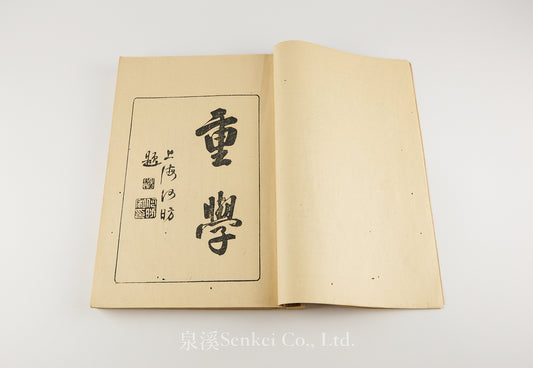 重學
上海何昉
題
泉溪Senkei Co., Ltd.